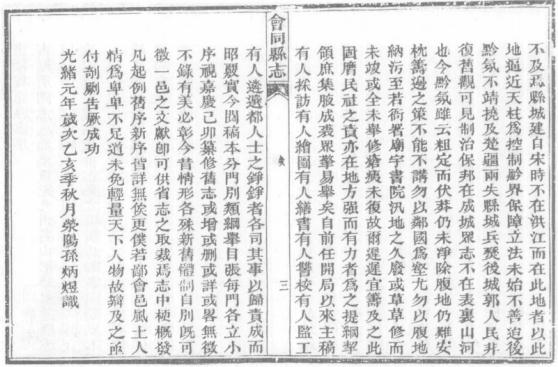 不及焉縣城建自宋時不在洪江而在此地者以此
地逼近天柱爲控制黔界保障立法未始不善迨後
黔氛不靖撓及楚疆兩失縣城兵燹後城郭人民非
復舊觀可見制治保邦在成城眾志不在表裏山河
也今黔氛雖云粗定而伏莽仍未淨除腹地仍難安
枕籌邊之策不能不講勿以鄰國爲壑尤勿以腹地
納污至若衙署廟宇書院汛地之久廢或草草修而
未竣或全未舉修瘡痍未復故爾遲遲宜籌及之此
固膺民社之責亦在地方强而有力者爲之提綱挈
領庶集腋成裘眾擎易舉矣自前任開局以來主稿
有人採訪有人繪圖有人繕書有人讐校有人監工
會同縣志
敘
三
有人遴選都人士之錚錚者各司其事以歸責成而
昭覈實今閱稿本分門別類綱舉目張每門各立小
序視嘉慶己卯纂修舊志或增或刪或詳或畧無徵
不錄有美必彰今昔情形各殊新舊體制自別既可
徵一邑之文獻卽可供省志之取裁焉志中梗概發
凡起例舊序新序皆詳無俟更僕若鄙會邑風土人
情爲卑卑不足道未免輕量天下人物故辯及之亟
付剞劂告厥成功
光緒元年歲次乙亥季秋月滎陽孫炳煜識